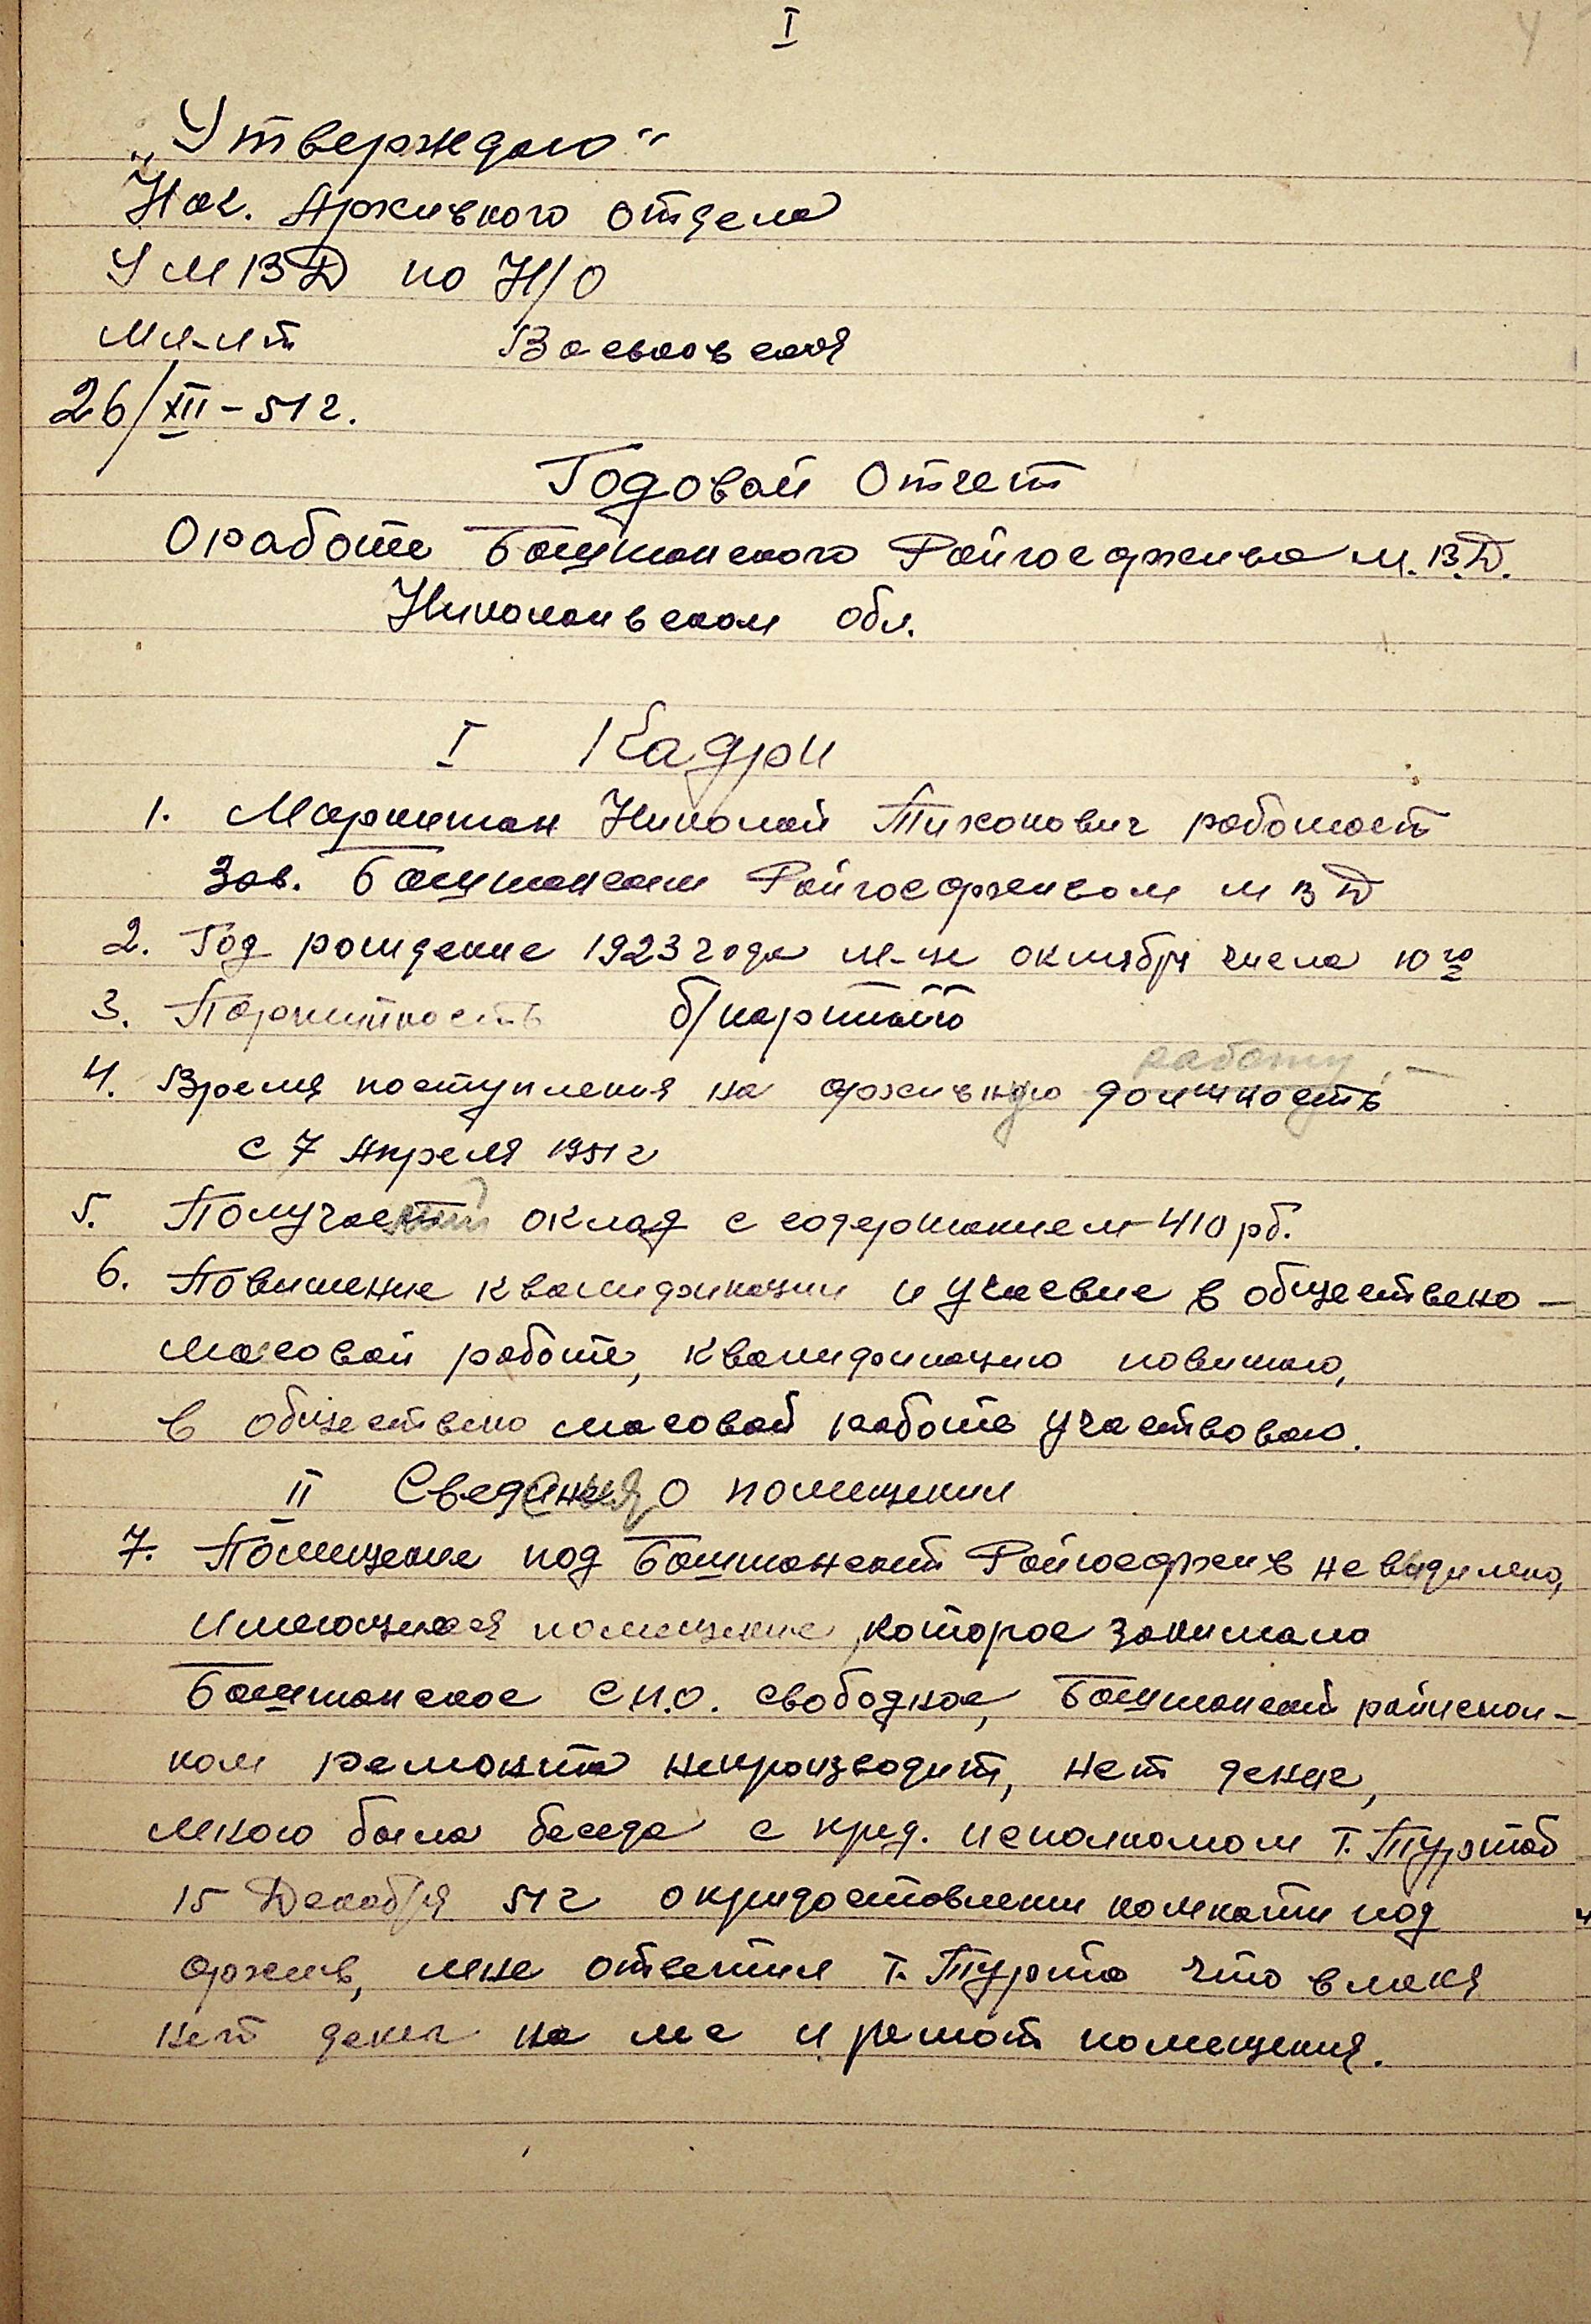 I
4
„Утверждаю“
Нач. Архивного отдела
УМВД по Н/О
мл-лт Васьковская
26/XII – 51 г.
Годовой Отчет
О работе Баштанского Райгосархива М.В.Д.
Николаевском обл.
I Кадри
1. Маркитан Николай Тихонович работает
Зав. Баштанским Райгосархивом МВД
2. Год рождение 1923 года м-ц октября числа 10го
3. Партийность б/партый
работу
4. Время поступления на архивную должность
с 7 Апреля 1951 г
5. Получает оклад с содержанием 410 рб.
6. Повишение квалификации и учасвие в обществено –
масовой работе, квалификацию повишаю,
в обществено масовой работе участвоваю.
II Сведения о помещении
7. Помещение под Баштанский Райгосархив не виделено,
имеющися помещение, которое занимало
Баштанское С.П.О. свободное, Баштанский райиспол-
ком ремонта непроизводит, нет денег,
мною была беседа с пред. исполкомом т. Турта
15 Декабря 51 г о предоставлении комнати под
архив, мне ответил т. Турта что в меня
нет денег на ме и ремот помещения.